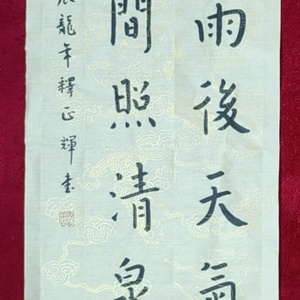 雨後天氣
間照清泉
辰龍年釋正輝書